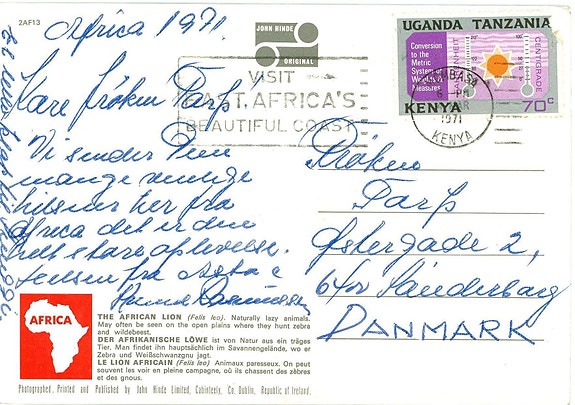 2AF13
Africa 1971.
JOHN HINDE
ORIGINAL
VISIT
EAST AFRICA'S
BEAUTIFUL COAST
UGANDA TANZANIA
Conversion
to the
Metric
System of
Weights &
Measures
FAHRENHEIT
CENTIGRADE
KENYA
70c
MOMBASA
1971
KENYA
Kære frøken Farsø.
Vi sender Dem
mange venlige
hilsner her fra
Africa det er den
helt store oplevelse.
hilsen fra Asta &
Frøken
Østergade 2,
6400 Sønderborg
DANMARK
AFRICA
THE AFRICAN LION (Felis leo). Naturally lazy animals.
May often be seen on the open plains where they hunt zebra
and wildebeest.
DER AFRIKANISCHE LÖWE ist von Natur aus ein träges
Tier. Man findet ihn hauptsächlich im Savannengelände, wo er
Zebra und Weißschwanzgnu jagt.
LE LION AFRICAIN (Felis leo) Animaux paresseux. On peut
souvent les voir en pleine campagne, où ils chassent des zèbres
et des gnous.
Photographed, Printed and Published by John Hinde Limited, Cabinteely, Co. Dublin, Republic of Ireland.